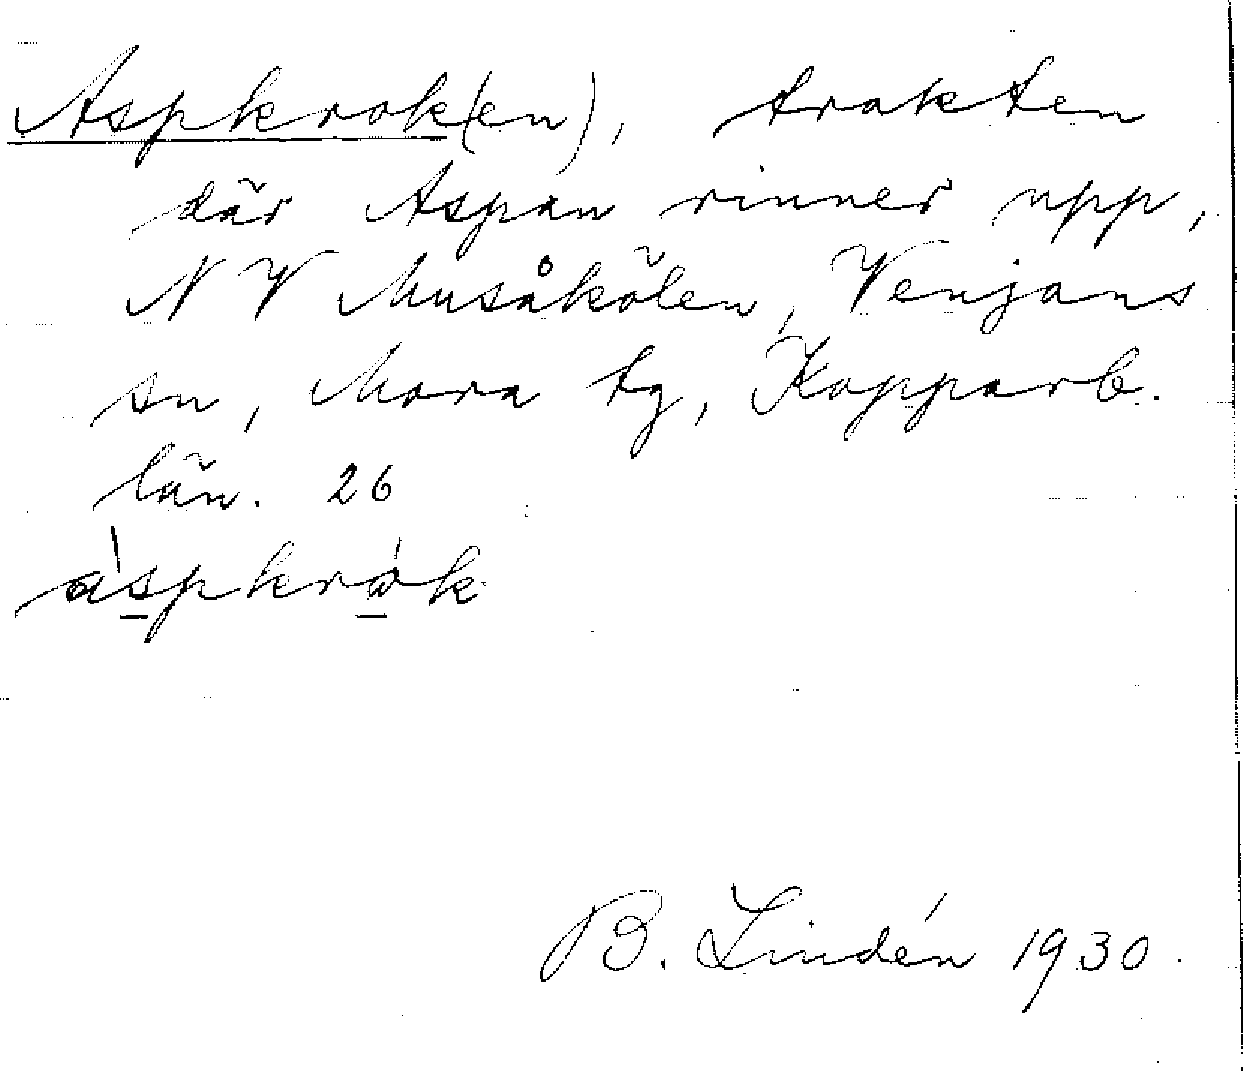 Aspkrok(en), trakten
där Aspan rinner upp,
NV Musåkölen, Venjans
sn, Mora tg, Kopparb.
län. 26
áspkrok
B. Lindén 1930.